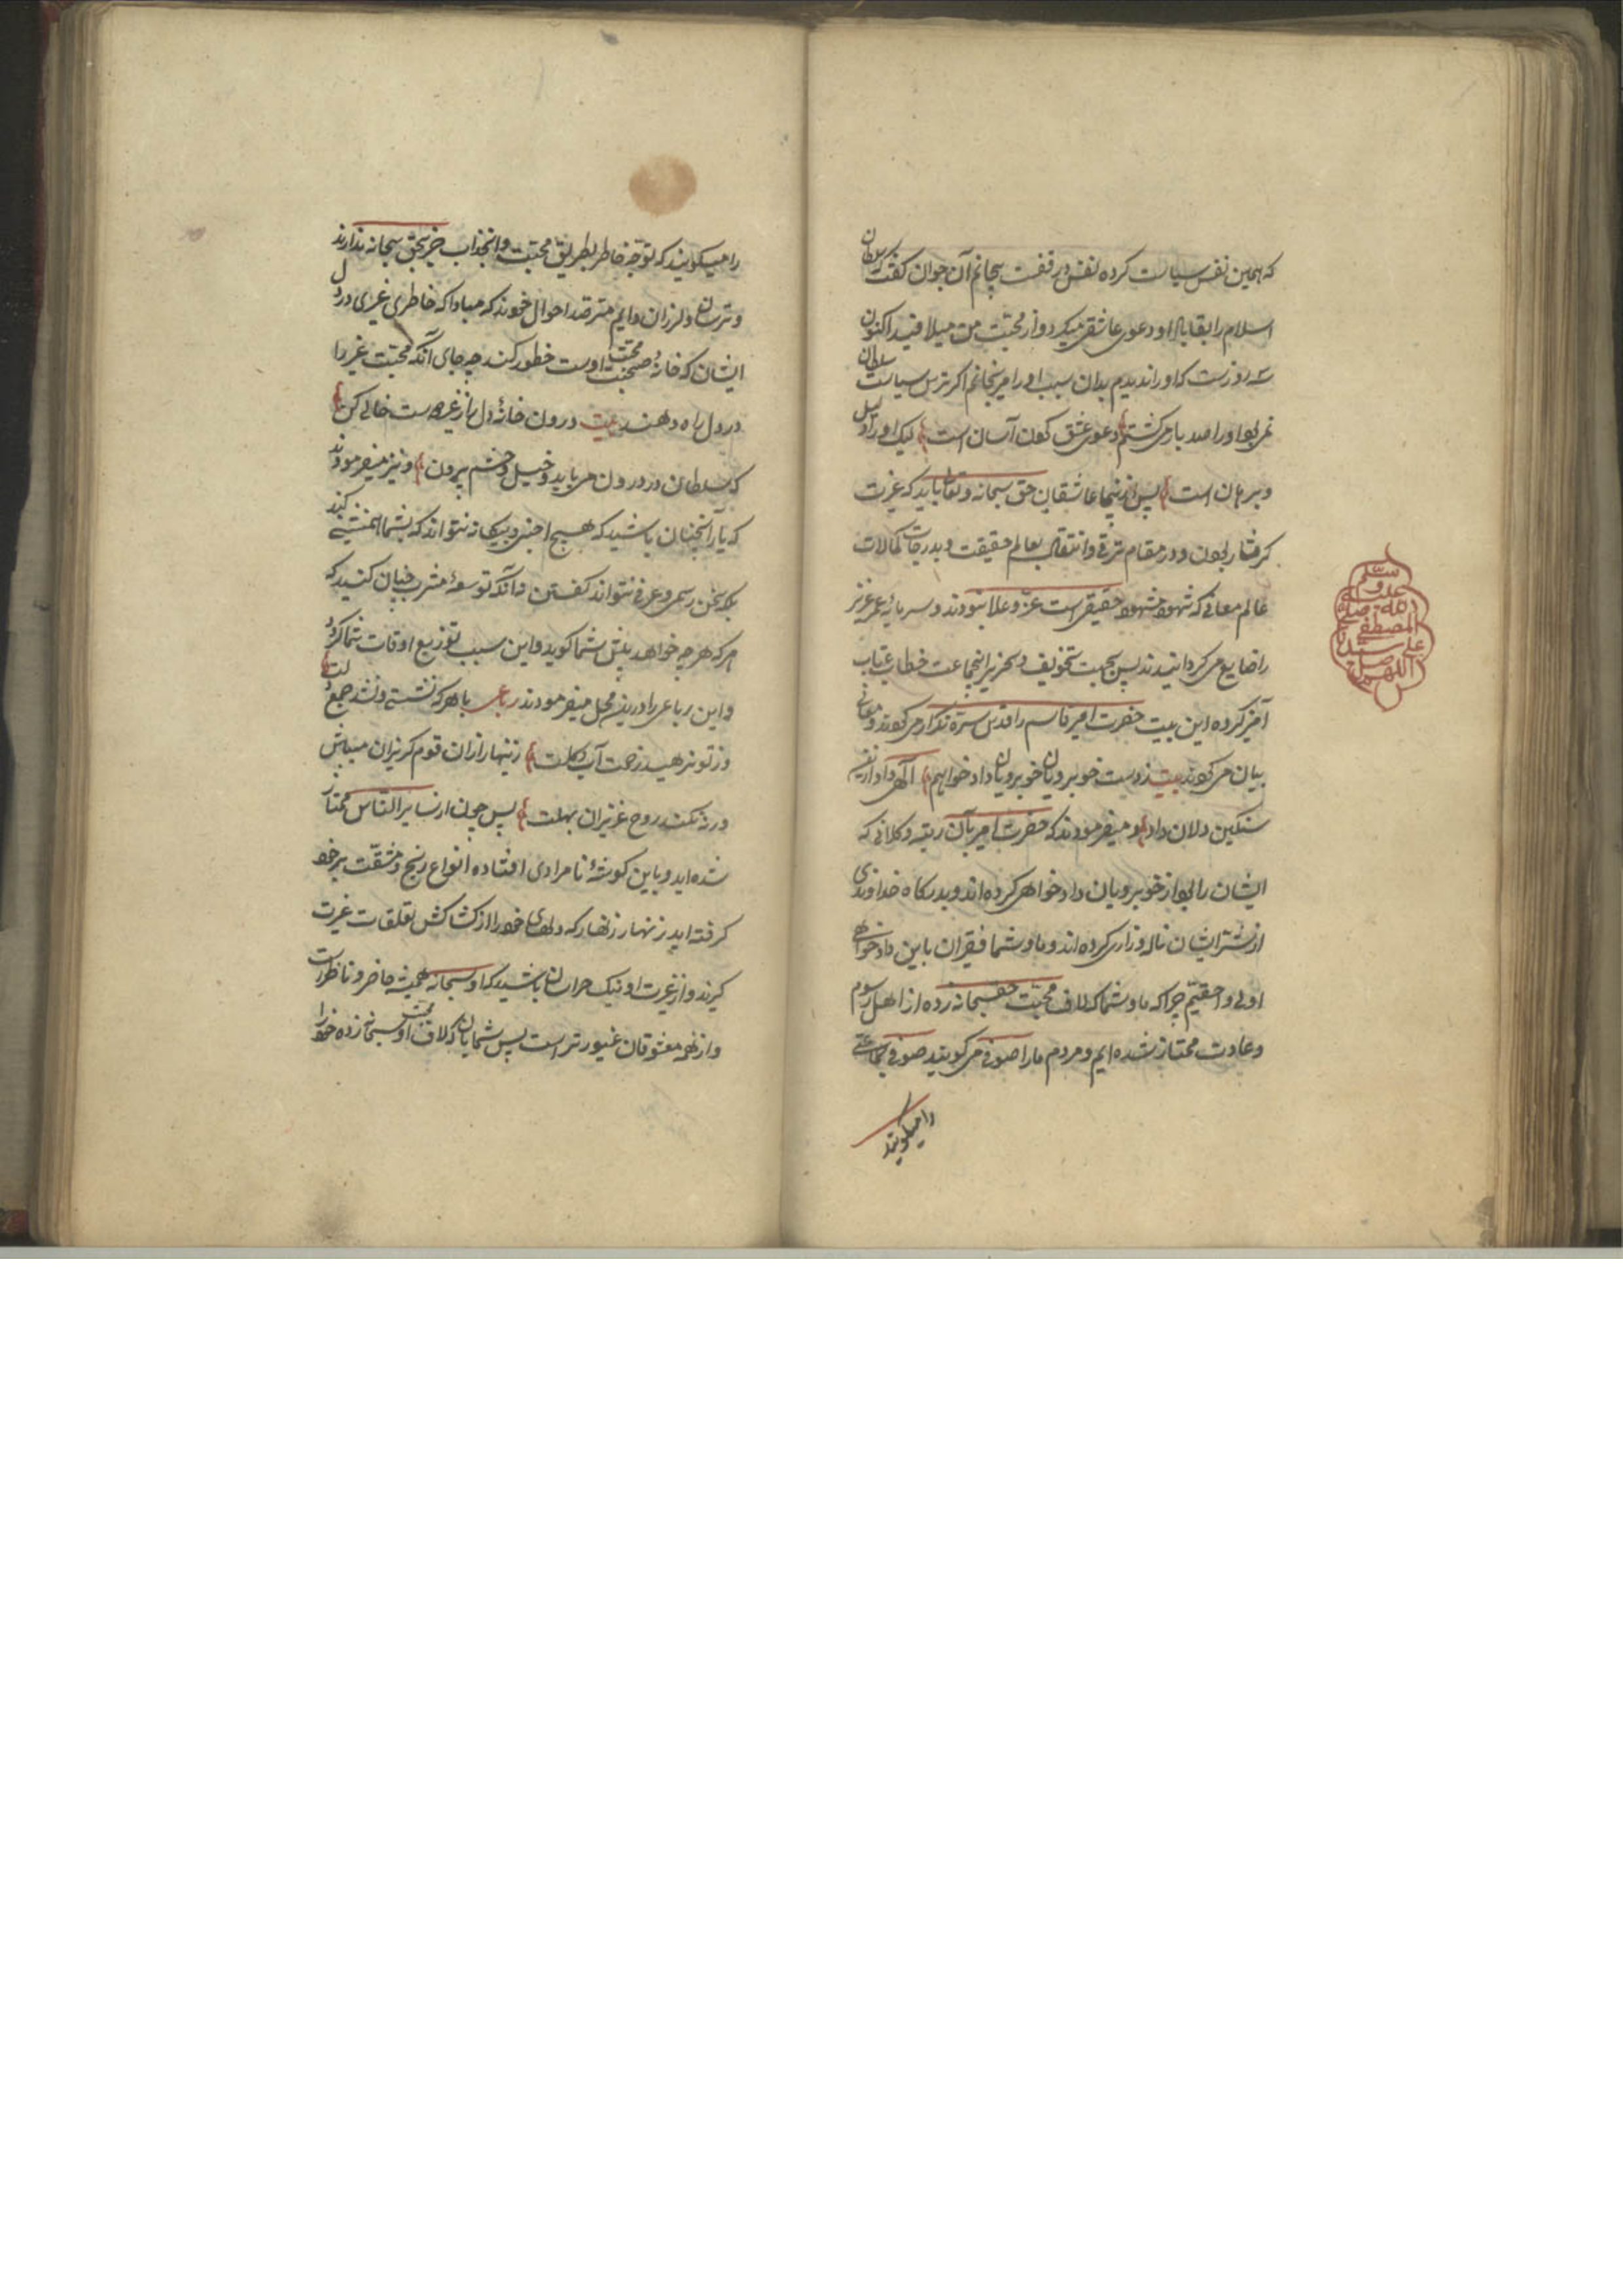 که همین نفس سیاست کرده نفس در قفست بیجانم آن جوان گفت سلطان
اسلام را بقا باد او دعوی عاشقی میکرد و از محبت من میلافید اکنون
سه روزست که او را ندیدم بدان سبب او را میرنجانم اگر ترس سیاست سلطان
نمی بود او را صد بار می کشتم دعوی عشق کردن آسان است لیک او را دلیل
و برهان است پس عاشقان حق سبحانه و تعالی باید که غیرت
گرفتار بودن و در مقام ترقی و انتقال بعالم حقیقت و بدرجات کمالات
عالم معانی که شهود مشهود حقیقی است عز و علا نبودند و سرمایه عمر عزیز
را ضایع می گردانیدند پس بجهت تخویف و تحذیر آنجماعت خطاب عتاب
آمیز کرده این بیت حضرت امیر قاسم را قدس سره تکرار می کردند و معانی
بیان می کردند بیت ز دست خوبرویان خوبرویان داد خواهیم الهی داد ازین
سنگین دلان داد و میفرمودند که حضرت امیر بآن رتبه و کلانی که
ایشان را بود از خوبرویان داد خواهی کرده اند و بدرگاه خداوندی
از شر ایشان ناله و زاری کرده اند و ما و شما فقیران باین داد خواهی
اولی و احقیم چرا که ما و شما که لاف محبت حق سبحانه زده از اهل رسوم
و عادت ممتاز شده ایم و مردم ما را صوفی می گویند صوفی جماعتی
را میگویند
اللهم صل
علی سیدنا
المصطفی
صلی الله
علیه و
سلم
را میگویند که توجه خاطر بطریق محبت و انجذاب جز بحق سبحانه ندارند
و ترسان و لرزان دایم مترصد احوال خودند که مبادا که خاطری غیری در دل
ایشان که خانه محبت صحبت اوست خطور کند چه جای آنکه محبت غیر را
در دل راه دهند بیت درون خانه دل از غیر حق است خالی کن
که سلطان در درون می باید و خیل و حشم بیرون و نیز میفرمودند
که یاران چنان باشید که هیچ اجنبی و بیگانه نتواند که بشما همنشینی کند
بلکه سخن رسمی و عرفی نتواند گفتن نه آنکه توسعه مشرب چنان کنید که
هر که هر چه خواهد پیش شما گوید و این سبب توزیع اوقات شما گردد
و این رباعی را درین محل میفرمودند رباعی با هر که نشستی و نشد جمع دلت
وز تو نرهید زحمت آب و گلت زنهار از آن قوم گریزان میباش
ورنه نکند روح عزیزان بحلت پس چون از سایر الناس ممتاز
شده اید و باین گوشه نامرادی افتاده انواع رنج و مشقت بر خود
گرفته اید زنهار زنهار که دلهای خود را از کشاکش تعلقات غیرت
گیرند و از غیرت او نیک هراسان باشید که او سبحانه همیشه حاضر و ناظرست
و از همه معشوقان غیورتر است پس شمایان که لاف محبت او سبحانه زده خود را